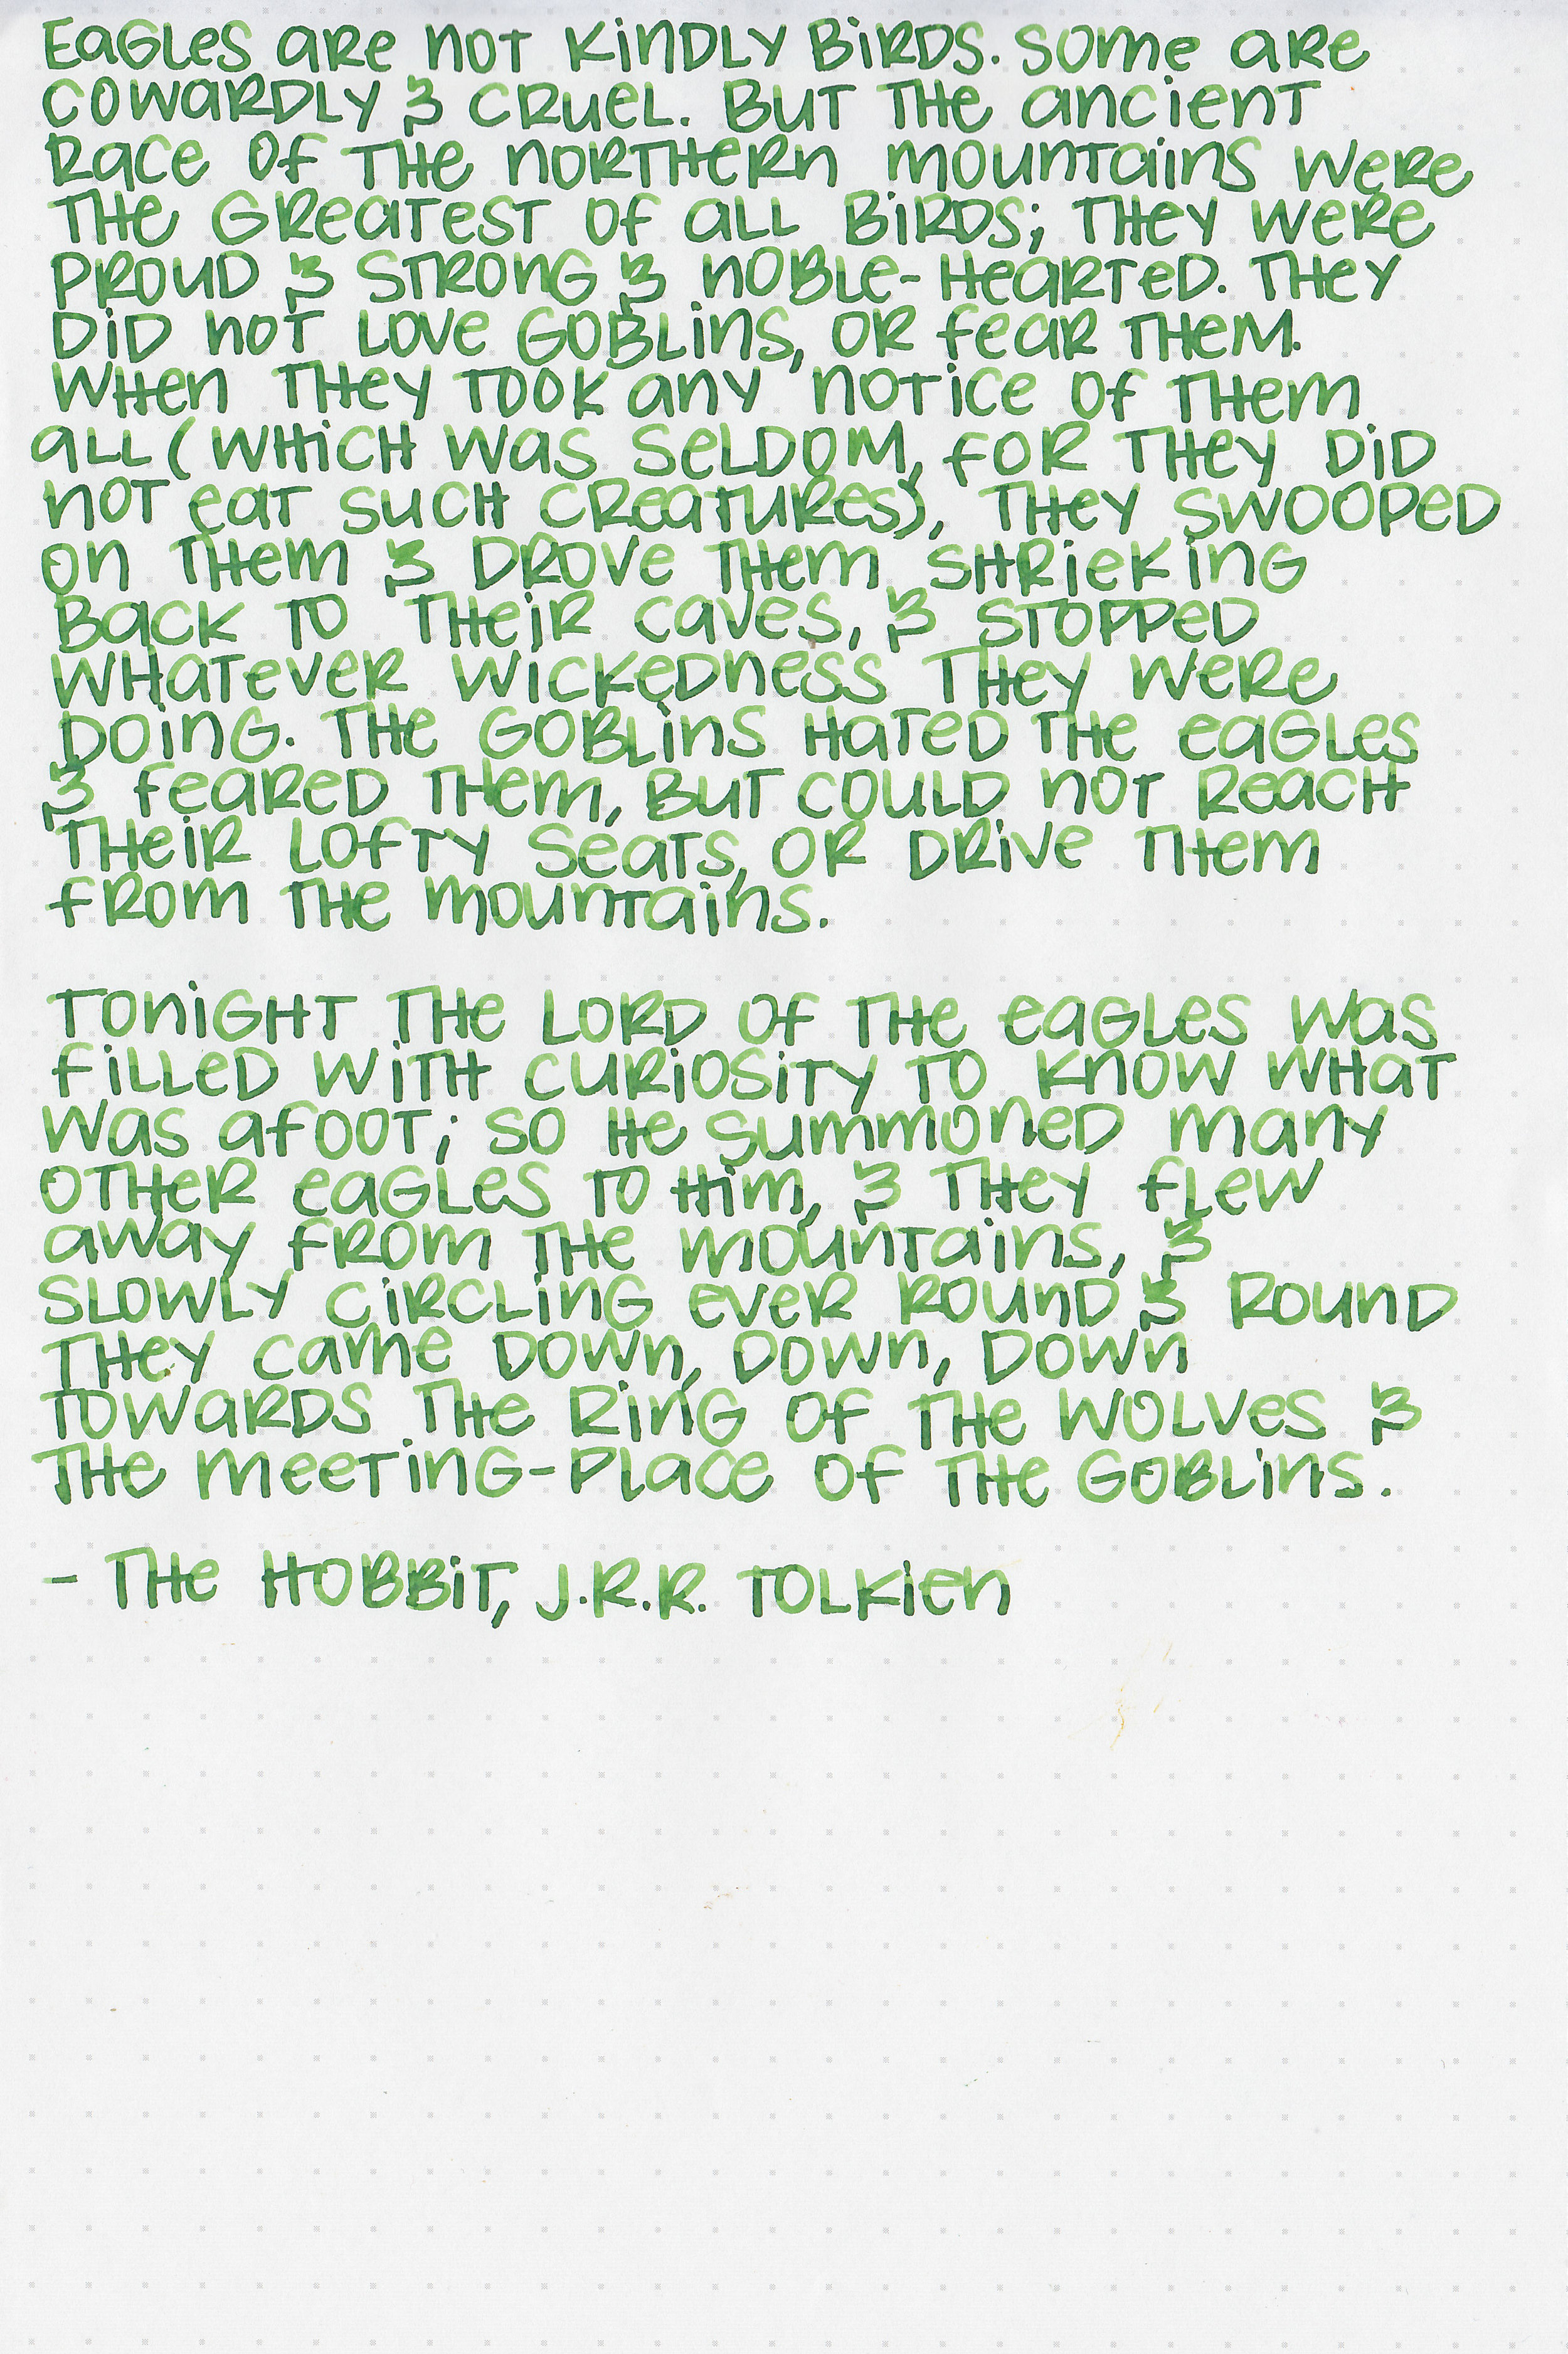 Eagles are not kindly birds. Some are
cowardly & cruel. But the ancient
race of the northern mountains were
the greatest of all birds; they were
proud & strong & noble-hearted. They
did not love goblins, or fear them.
When they took any notice of them
all (which was seldom, for they did
not eat such creatures), they swooped
on them & drove them shrieking
back to their caves, & stopped
whatever wickedness they were
doing. The goblins hated the eagles
& feared them, but could not reach
their lofty seats, or drive them
from the mountains.
Tonight the Lord of the Eagles was
filled with curiosity to know what
was afoot; so he summoned many
other eagles to him, & they flew
away from the mountains, &
slowly circling ever round & round
they came down, down, down
towards the ring of the wolves &
the meeting-place of the goblins.
- The Hobbit, J.R.R. Tolkien